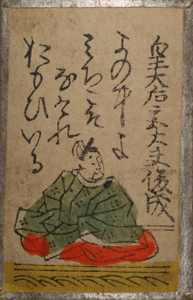 皇太后宮大夫俊成
よの中よ
みちこそ
なけれ
おもひいる